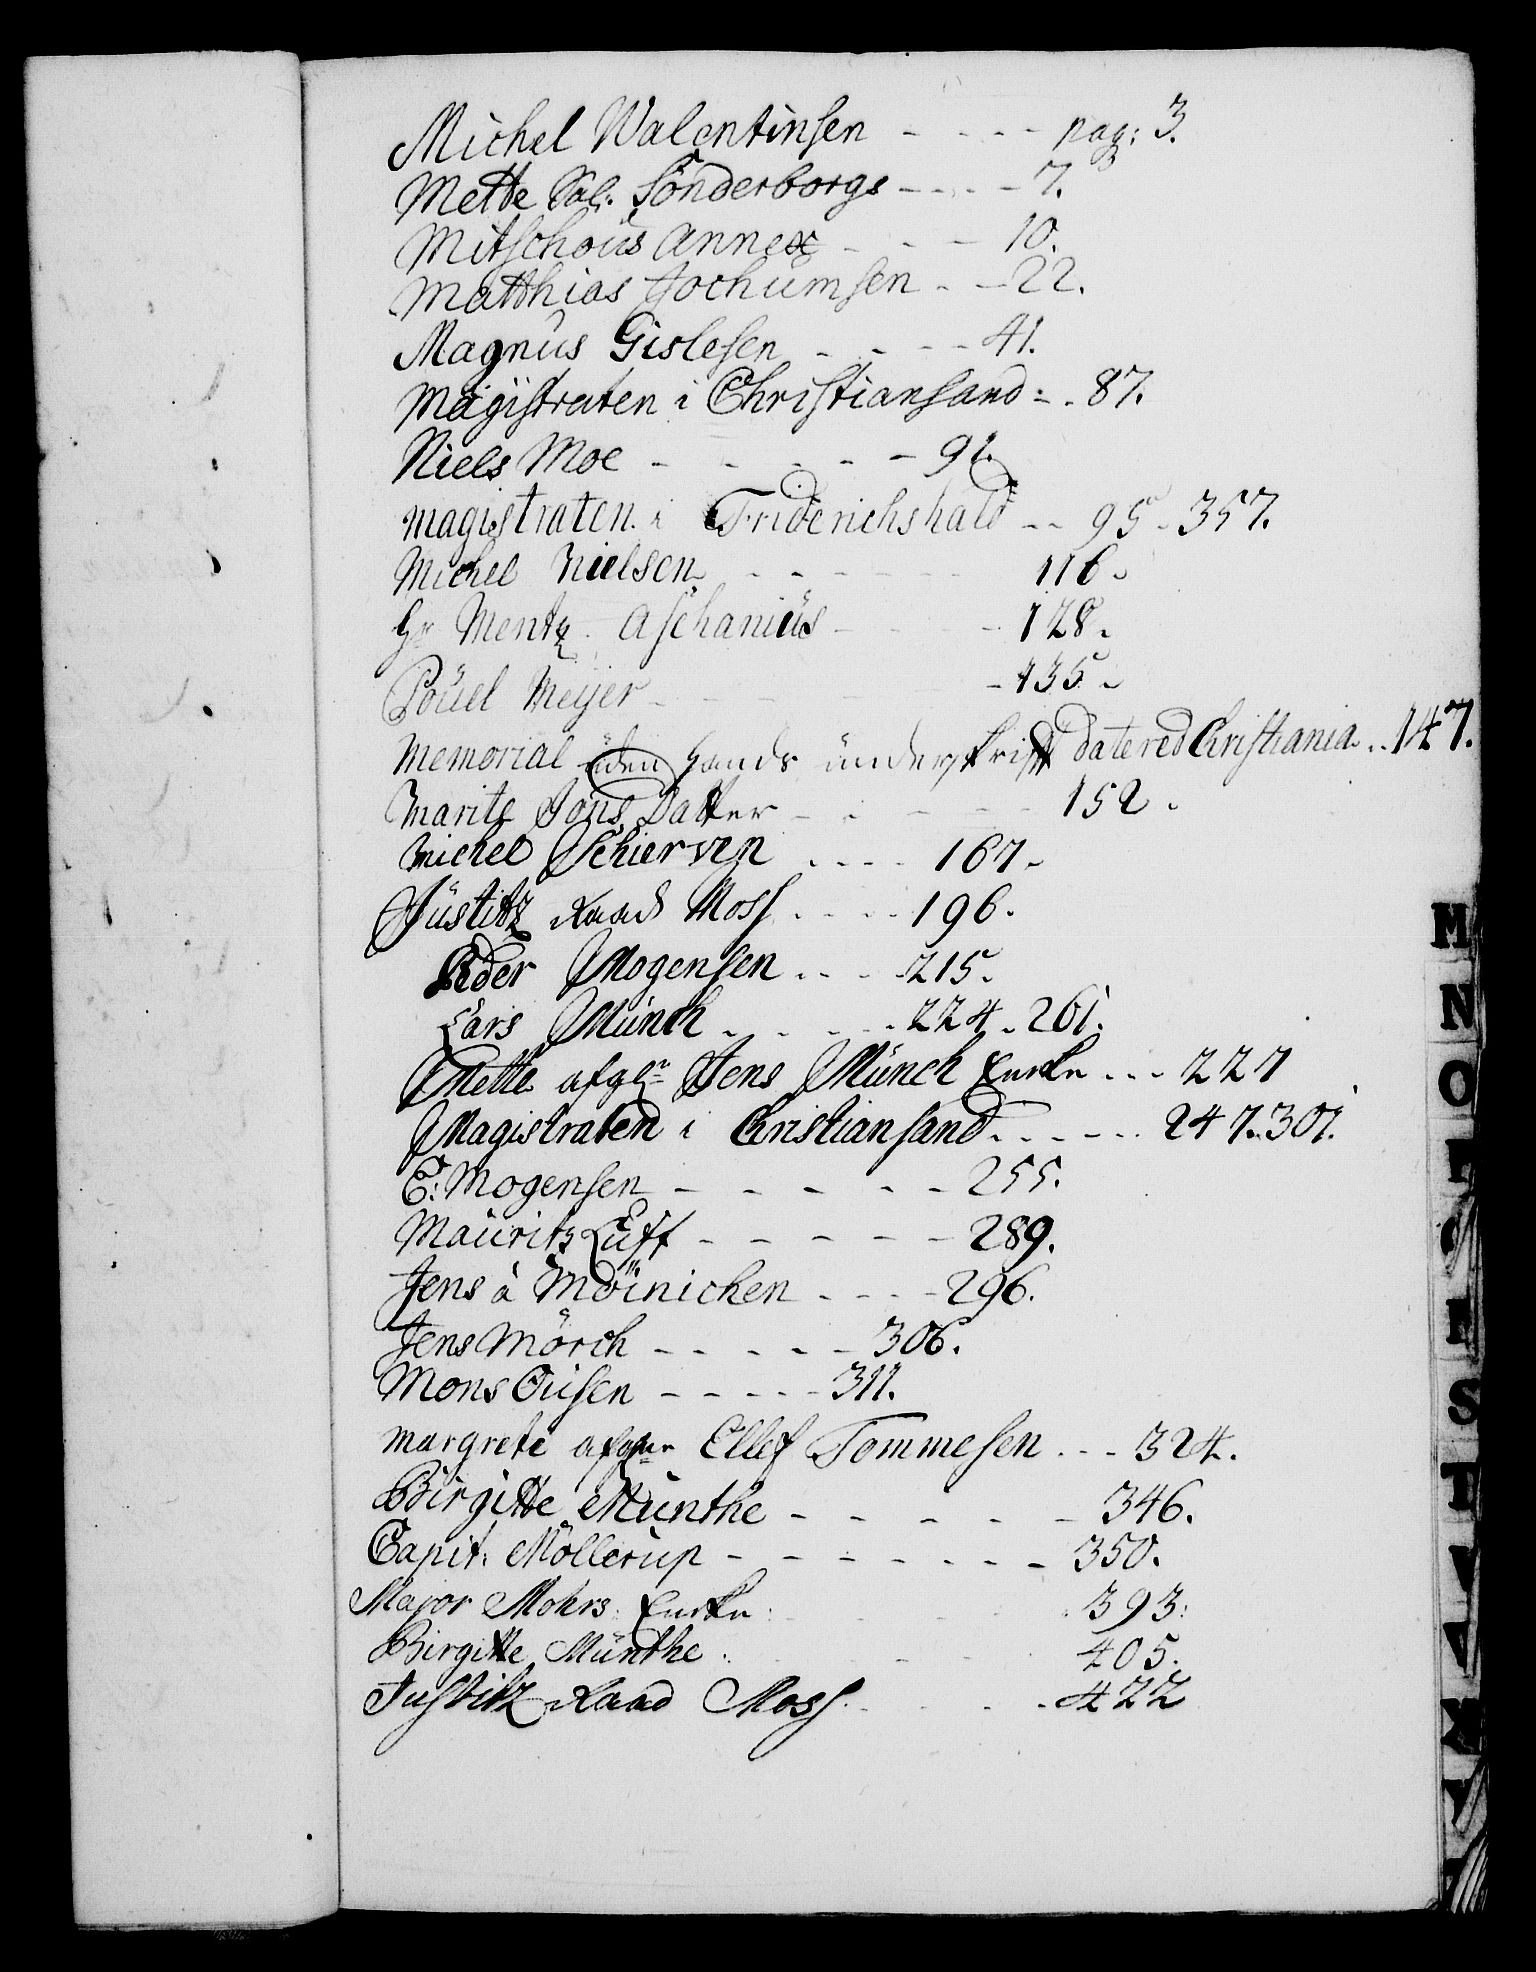 Michel Walentinsen - - - - pag: 3.
Mette Sal: Sönderborgs - - - - 7.
Mitschoüs Annex - - - 10.
Matthias Jochumsen - - 22.
Magnus Gislesen - - - - 41.
Magistraten i Christiansand - - 87.
Niels Moe - - - - - 91.
Magistraten i Friderichshald - - 95 - 357.
Michel Nielsen - - - - - 116.
Hr Mentz Aschanius - - - - 128.
Pouel Meijer - - - - 135.
Memorial uden Hands underskrifft datered Christiania .. 147.
Marite Jons Datter - - - - 152.
Michel Schierven - - - - 167.
Justitz Raad Moss - - - - 196.
Peder Mogensen - - - 215.
Lars Münch - - - - - 224 - 261.
Mette afgl: Jens Münch Enke - - - 227
Magistraten i Christiansand - - - - - 247. 301.
C: Mogensen - - - - - 255.
Mauritz Luft - - - - - 289.
Jens à Möinichen - - - - 296.
Jens Mörch - - - - - 306.
Mons Ousen - - - - - 311.
Margrete Ellef Tommesen - - - 324.
Birgitte Munthe - - - - - 346.
Capit: Möllerup - - - - - - - 350.
Major Mohrs Enke - - - - 393.
Birgitte Munthe - - - - 405.
Justitz Raad Moss - - - - 422
M
N
O
S
T
V
X
Y